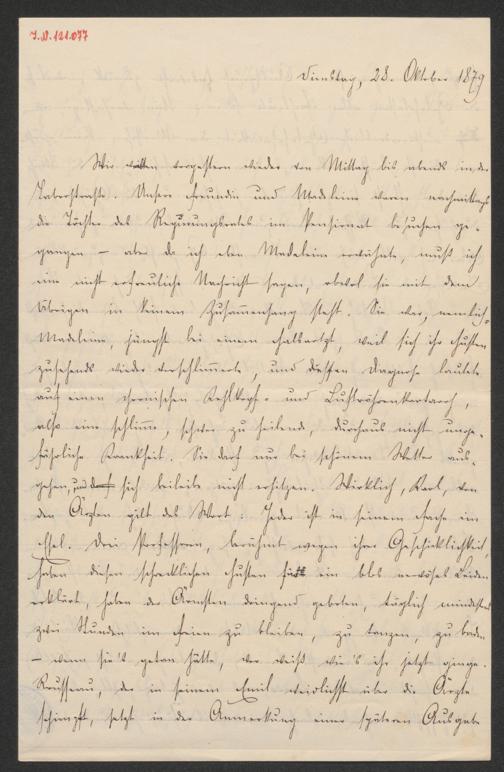 I.N. 121.077
Dienstag, 28. Oktober 1879
Wir waren vorgestern wieder von Mittag bis abends in der
Praterstraße. Unsere Freundin und Madeleine waren nachmittags
die Töchter des Regierungsrates im Pensionat besuchen ge-
gangen – aber da ich eben Madeleine erwähnte, muß ich
eine nicht erfreuliche Nachricht sagen, obwol sie mit dem
Übrigen in keinem Zusammenhang steht. Sie war, nemlich
Madeleine, jüngst bei einem Halsarzt, weil sich ihr Husten
zusehends wieder verschlimmerte, und dessen Diagnose lautete
auf einen chronischen Kehlkopf- und Luftröhrenkatarrh,
also eine schlimme, schwer zu heilende, durchaus nicht unge-
fährliche Krankheit. Sie darf nur bei schönem Wetter aus-
gehen, und sich beileibe nicht erhitzen. Wirklich, Karl, von
den Ärzten gilt das Wort: Jeder ist in seinem Fache ein
Esel. Drei Professoren, berühmt wegen ihrer Geschicklichkeit,
haben diesen schrecklichen Husten für ein blos nervöses Leiden
erklärt, haben der Ärmsten dringend geboten, täglich mindestens
zwei Stunden im Freien zu bleiben, zu tanzen, zu baden
– wenn sie's getan hätte, wer weiß wie's ihr jetzt ginge.
Rousseau, der in seinem Emil weidlichst über die Ärzte
schimpft, setzt in der Anmerkung einer späteren Ausgabe